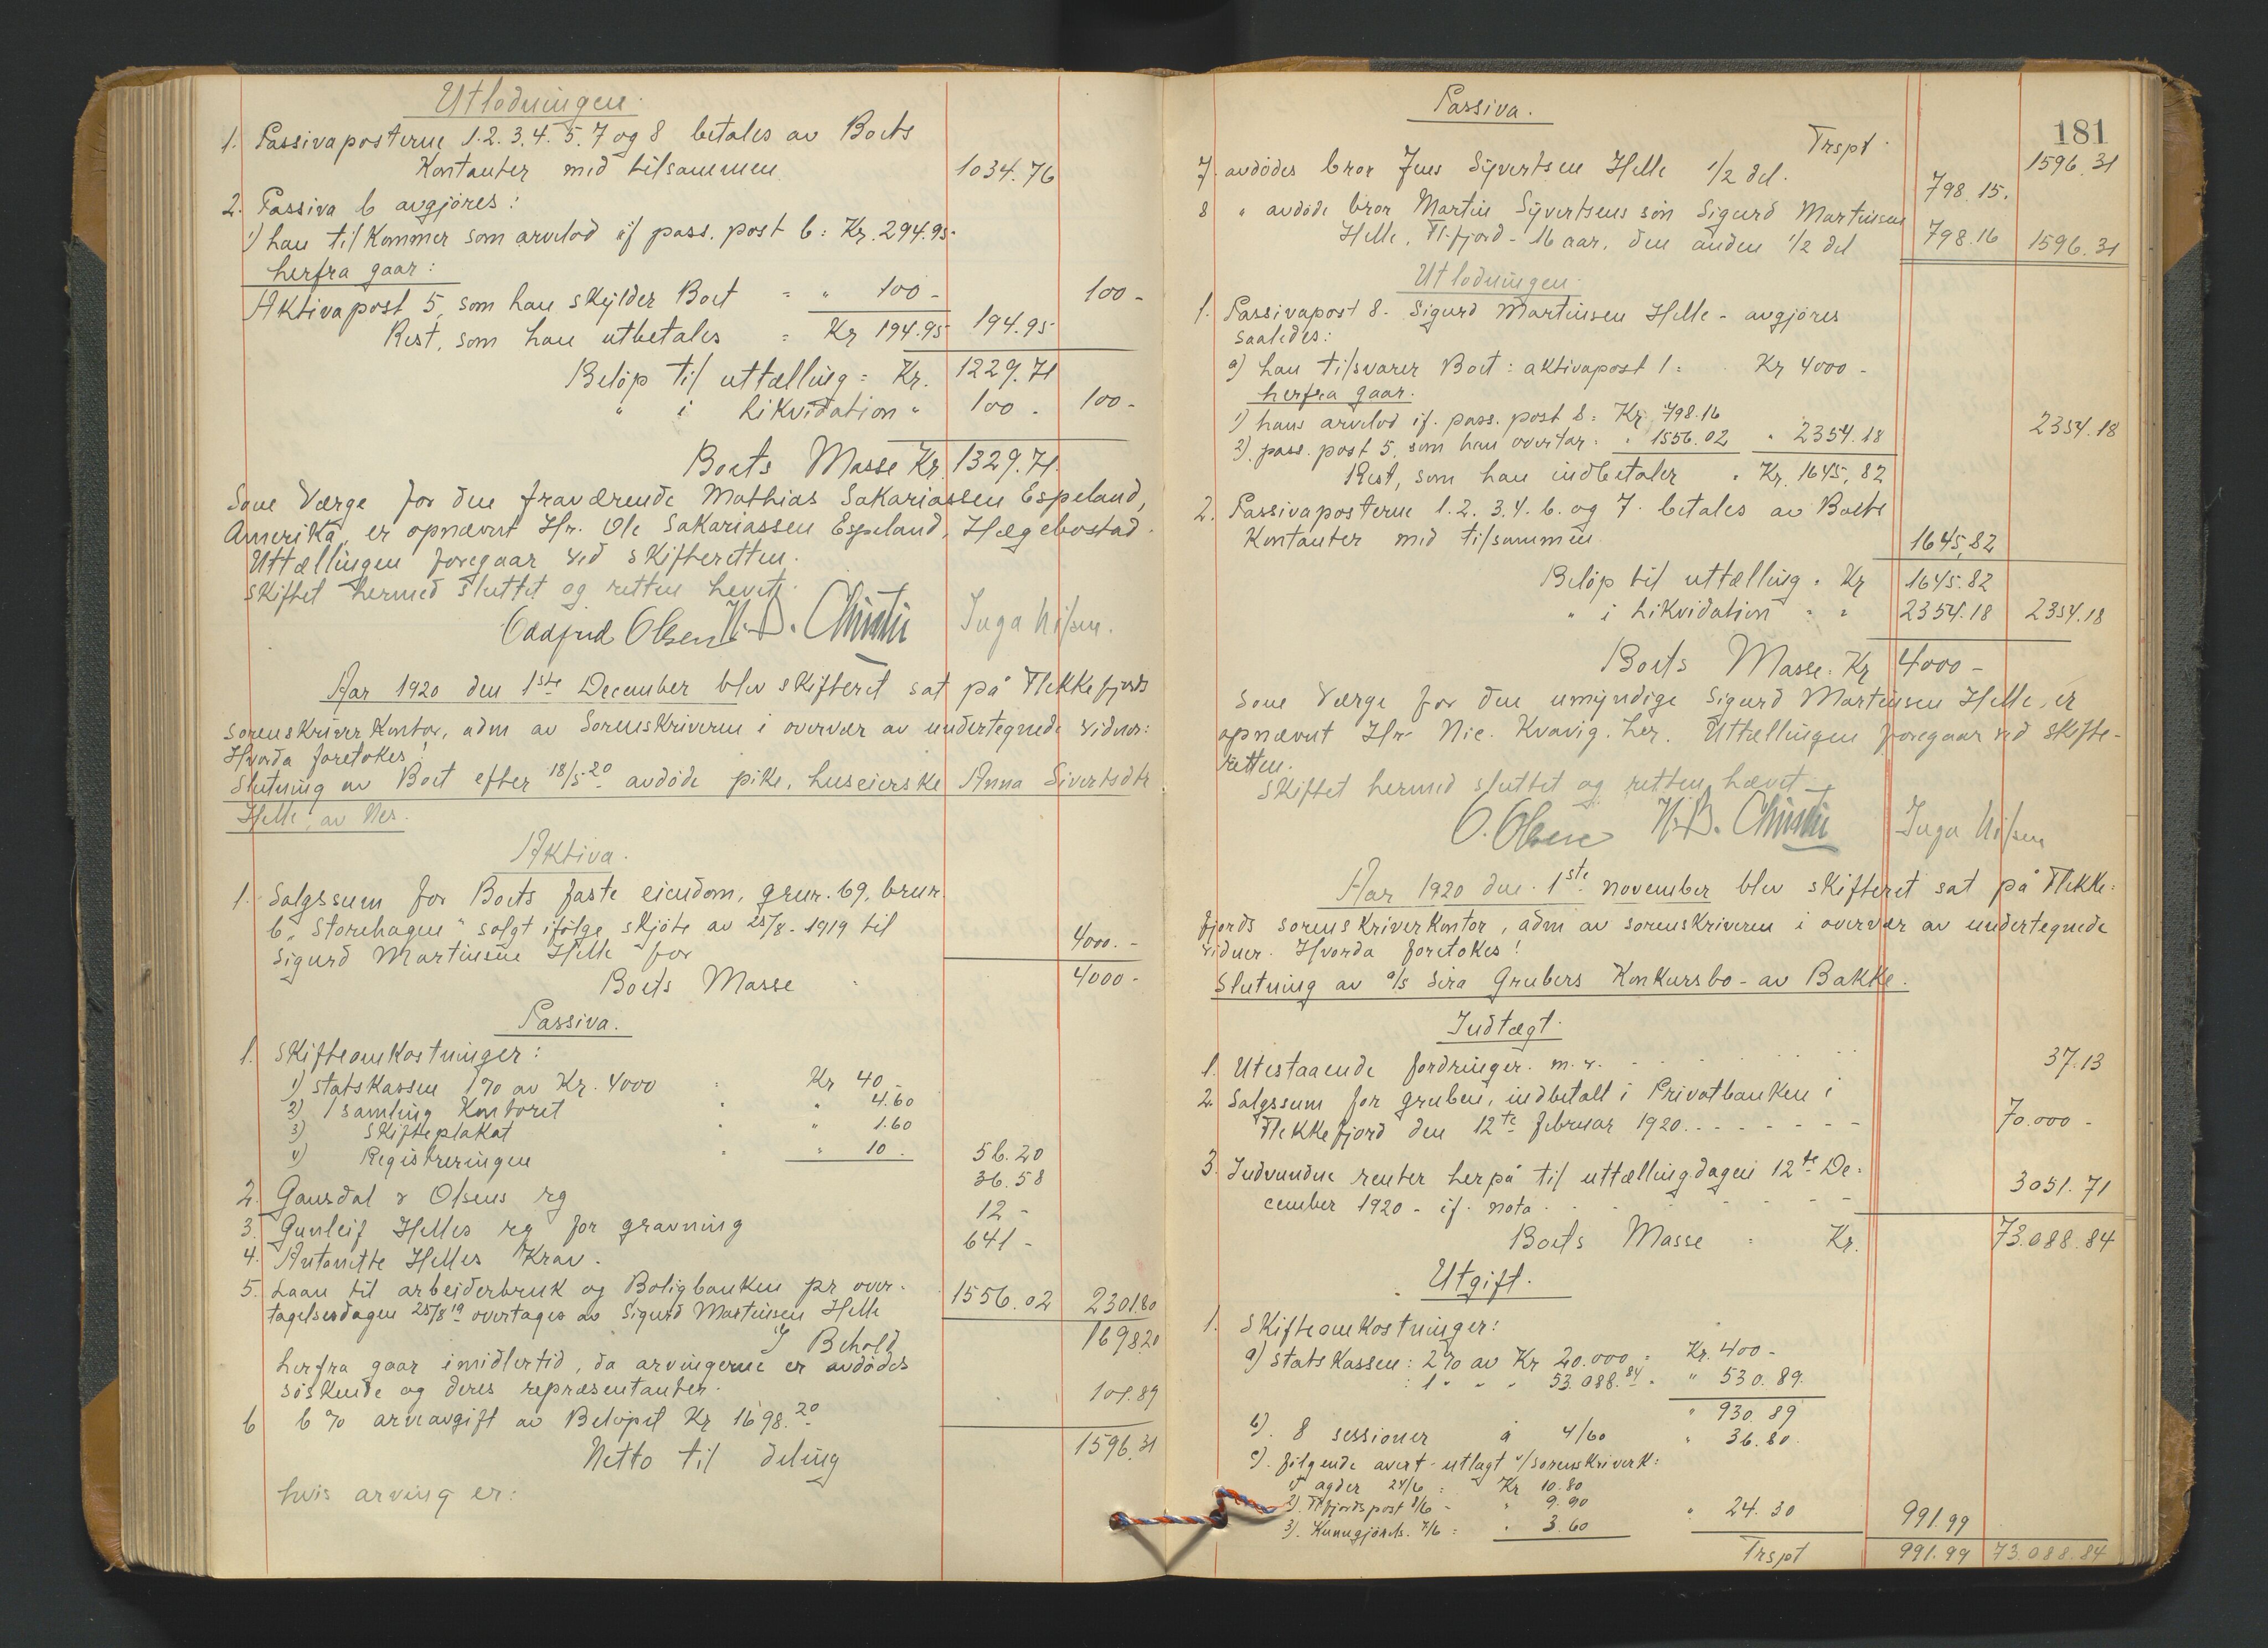 Utlodningen.
1. Passivaposterne 1.2.3.4.5.7 og 8 betales av Boets
Kontanter med tilsammen 1034.76
2. Passiva 6 avgjøres:
1) han tilkommer som arvelod if pass. post 6: Kr. 294.95
herfra gaar:
Aktivapost 5, som han skylder Boet = " 100 - 100 -
Rest, som han utbetales = Kr 194.95 194.95
Beløp til uttælling = Kr. 1229.71
" i Likvidation " 100 - 100 -
Boets Masse Kr. 1329.71.
Som Værge for den fraværende Mathias Sakariassen Espeland,
Amerika, er opnævnt Hr. Ole Sakariassen Espeland, Hægebostad.
Uttællingen foregaar ved skifteretten.
Skiftet hermed sluttet og retten hevet.
Oddfrid Olsen N.D. Christi Inga Nilsen.
Aar 1920 den 1ste December blev skifteret sat på Flekkefjords
sorenskriverkontor, adm av Sorenskriveren i overvær av undertegnede vidner:
Hvorda foretokes!
Slutning av Boet efter 18/5-20 avdøde pike, huseierske Anna Sivertsdtr
Helle, av Nes.
Aktiva.
1. Salgssum for Boets faste eiendom, grnr. 69, brnr.
6 "Storehagen" solgt ifølge skjøte av 25/8-1919 til
Sigurd Martinsen Helle for 4000.-
Boets Masse 4000-
Passiva.
1. Skifteomkostninger:
1) statskassen 1% av Kr. 4000 = Kr 40 -
2) 1 samling Kontoret " 4.60
3) Skifteplakat " 1.60
4) Registreringen " 10. 56.20
2. Gausdal & Olsens rg 36.58
3. Gunleif Helles rg for gravning 12 -
4. Antonette Helles Krav. 641 -
5. Laan til arbeiderbruk og Boligbanken pr over-
tagelsesdagen 25/8 19 overtages av Sigurd Martinsen Helle 1556.02 2301.80
I Behold 1698.20
herfra gaar imidlertid, da arvingerne er avdødes
søskende og deres repræsentanter.
6 6% arveavgift av Beløpet Kr 1698.20 101.89
Netto til deling 1596.31
hvis arving er:
181
Passiva.
Trspt. 1596.31
7. avdødes bror Jens Syvertsen Helle 1/2 del. 798.15.
8 " avdøde bror Martin Syvertsens søn Sigurd Martinsen
Helle, Fl.fjord - 16 aar, den anden 1/2 del 798.16 1596.31
Utlodningen.
1. Passivapost 8 - Sigurd Martinsen Helle - avgjøres
saaledes:
a) han tilsvarer Boet: aktivapost 1 = Kr 4000 -
herfra gaar.
1) hans arvelod if. pass. post 8 = Kr 798.16
2) pass. post 5 som han overtar = " 1556.02 " 2354.18 2354.18
Rest, som han indbetaler = Kr. 1645,82
2. Passivaposterne 1.2.3.4.6. og 7. betales av Boets
Kontanter med tilsammen 1645,82
Beløp til uttælling = Kr 1645.82
" i Likvidation = " 2354.18 2354.18
Boets Masse: Kr 4000 -
Som Værge for den umyndige Sigurd Martinsen Helle, er
opnævnt Hr. Nic. Kvavig. her. Uttællingen foregaar ved skifte-
retten.
Skiftet hermed sluttet og retten hævet
O. Olsen N.D. Christi Inga Nilsen
Aar 1920 den 1ste november blev skifteret sat på Flekke-
fjords sorenskriverkontor, adm av sorenskriveren i overvær av undertegnede
vidner. Hvorda foretokes!
Slutning av a/s Sira Grubers Konkursbo - av Bakke.
Indtægt.
1. Utestaaende fordringer. m.v. 37.13
2. Salgssum for gruben, indbetalt i Privatbanken i
Flekkefjord den 12te februar 1920 70.000 -
3. Indvundne renter herpå til uttællingdagen 12te De-
cember 1920 - if. nota 3051.71
Boets Masse = Kr. 73.088.84
Utgift.
1. Skifteomkostninger:
a) statskassen: 2% av Kr 20.000 = Kr. 400 -
: 1 " " " 53.088.84 = " 530.89.
" 930.89
b). 8 sessioner à 4/60 " 36.80.
c). følgende avert. utlagt v/sorenskriverk:
1) Agder 24/6 = Kr 10.80
2). Fl.fjords post 8/6 - " 9.90
3). Kunngjørels. 7/6 = " 3.60 " 24.30 991.99
Trspt 991.99 73.088.84